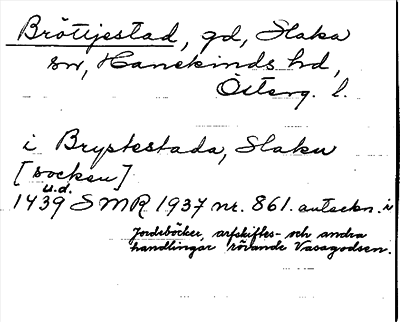 Bröttjestad, gd, Slaka
sn, Hanekinds hd,
Österg. l.
i Brystestada, Slaku
[socken]
u.d.
1439 SMR 1937 nr. 861. anteckn. i
Jordeböcker, arfskiftes- och andra
handlingar rörande Vasagodsen.